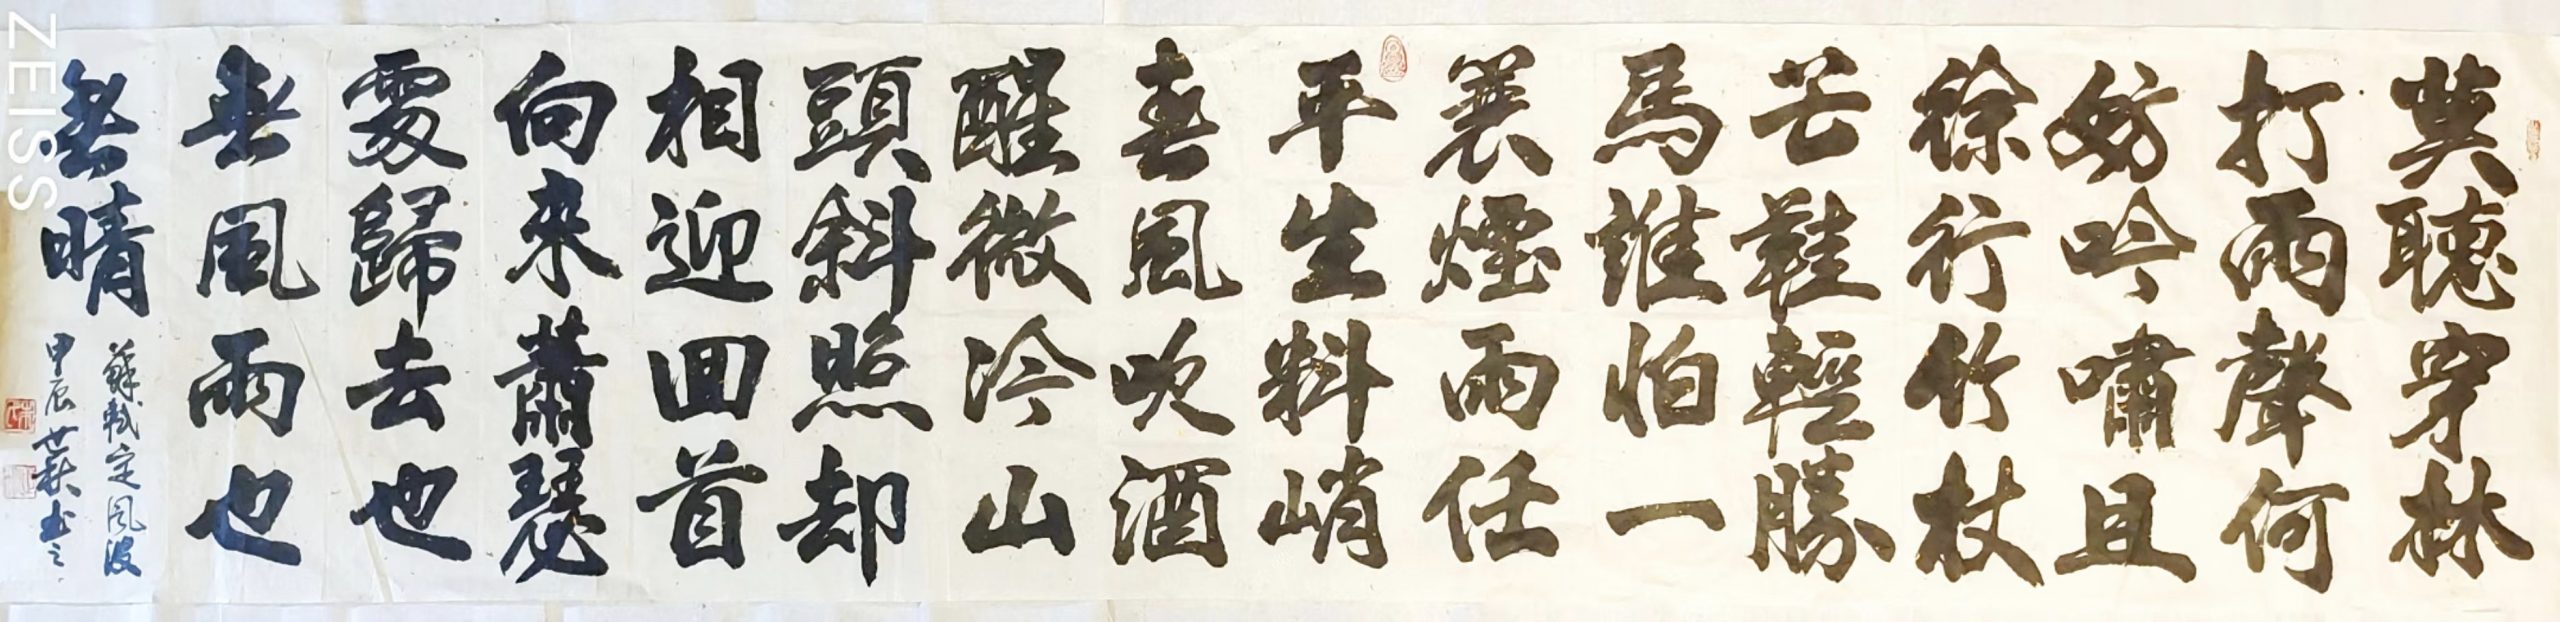 莫聽穿林
打雨聲何
妨吟嘯且
徐行竹杖
芒鞋輕勝
馬誰怕一
蓑煙雨任
平生料峭
春風吹酒
醒微冷山
頭斜照却
相迎回首
向来蕭瑟
處歸去也
無風雨也
無晴
蘇軾定風波
甲辰世秋书之
ZEISS